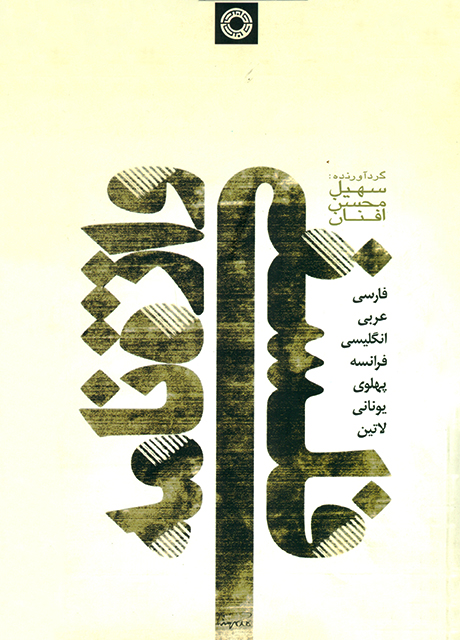 واژه‌نامه
فلسفی
گردآورنده:
سهیل
محسن
افنان
فارسی
عربی
انگلیسی
فرانسه
پهلوی
یونانی
لاتین